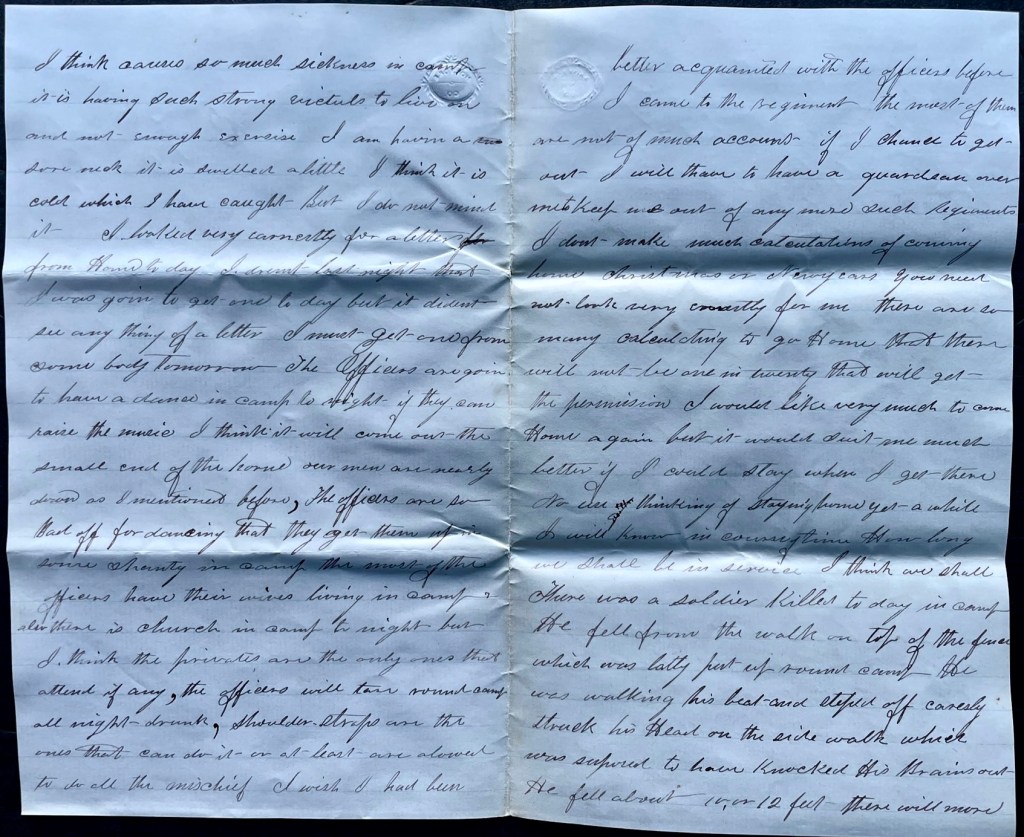 I think causes so much sickness in camp
it is having such strong victuls to live on
and not enough excercise I am havin a
sore neck it is swelled a little I think it is
cold which I have caught But I do not mind
it I looked very earnestly for a letter
from Home to day I dremt last night that
I was goin to get one to day but it dident
see any thing of a letter I must get one from
some body tomorrow The Officers are goin
to have a dance in camp to night if they can
raise the music I think it will come out the
small end of the horne our men are nearly
down as I mentioned before, The officers are so
Bad off for dancing that they get them up in
some shanty in camp the most of the
officers have their wives living in camp
also there is church in camp to night but
I think the privates are the only ones that
attend if any, the officers will tair round camp
all night drunk, shoulder straps are the
ones that can do it or at least are alowed
to do all the mischief I wish I had been
better acquanited with the officers before
I came to the regiment the most of them
are not of much account if I chance to get
out I will thave to have a guardean over
me to keep me out of any more such Regiments
I dont make much calculations of coming
home christmas or Newyears you need
not look very for me there are so
many calculating to go Home that there
will not be one in twenty that will get
the permission I would like very much to come
Home again but it would suit me much
better if I could stay when I get there
No use thinking of staying home yet a while
I will know in comeing time How long
we shall be in service I think we shall
There was a soldier Killed to day in camp
He fell from the walk on top of the fence
which was latly put up round camp He
was walking his beat and steped off caresly
struck his Head on the side walk which
was suposed to have Knocked His Brains out
He fell about 10, or 12 feet there will more